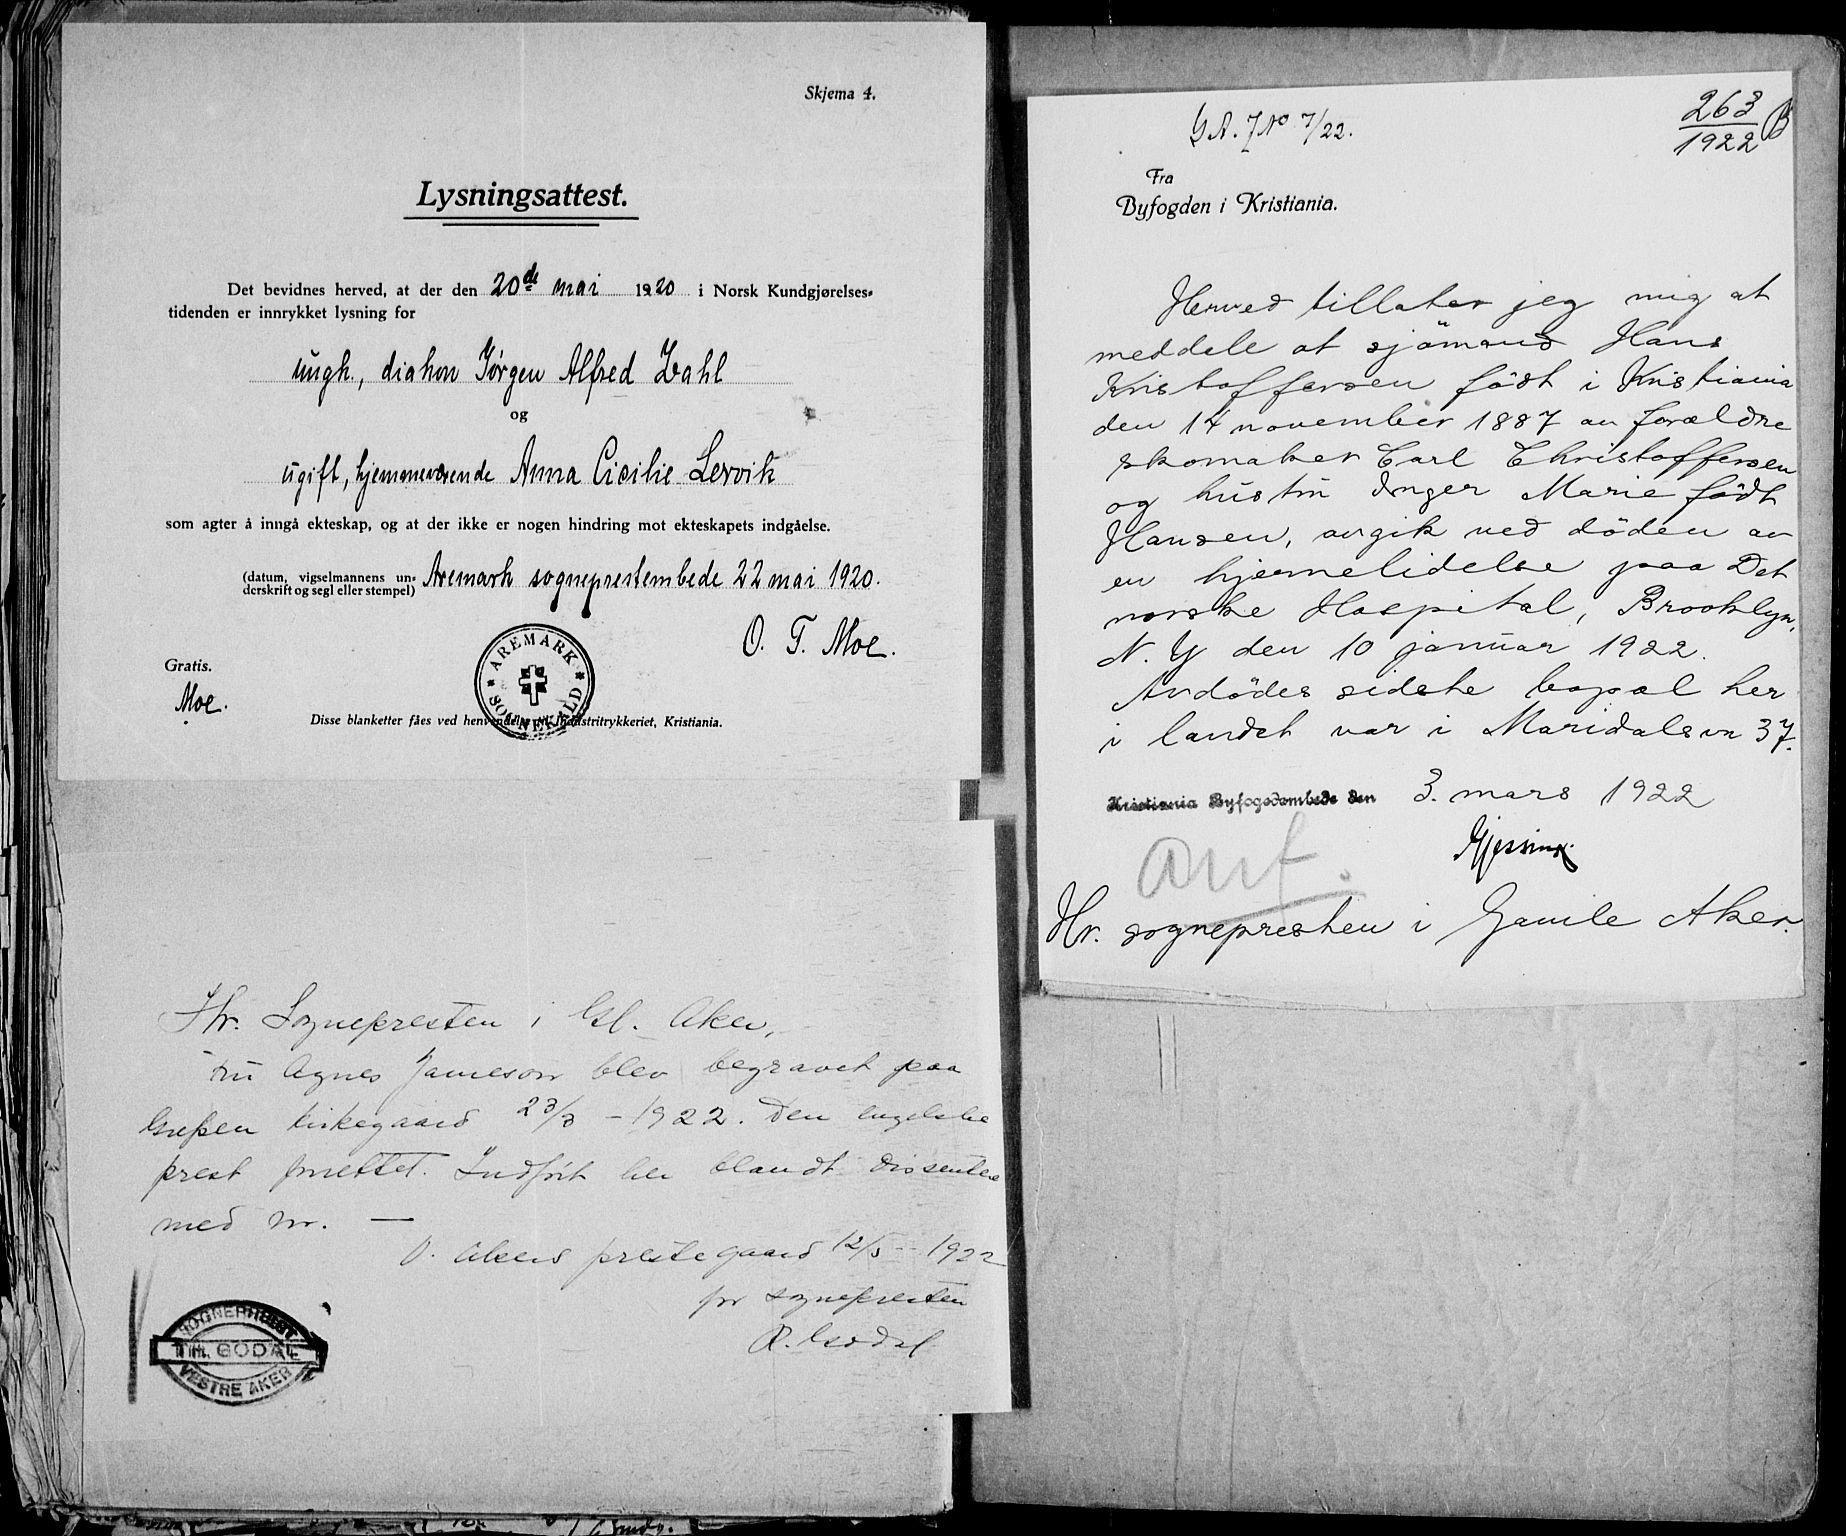 Skjema 4.
Lysningsattest.
Det bevidnes herved, at der den 20de mai 1920 i Norsk Kundgjørelses-
tidenden er innrykket lysning for
ungk., diakon Jørgen Alfred Dahl
og
ugift, hjemmeværende Anna Cicilie Lervik
som agter å inngå ekteskap, og at der ikke er nogen hindring mot ekteskapets indgåelse.
(datum, vigselmannens un-
derskrift og segl eller stempel) Aremark sogneprestembede 22 mai 1920.
O. T. Moe.
AREMARK SOGNEKALD
Gratis.
Moe.
Disse blanketter fåes ved henvendelse til Industritrykkeriet, Kristiania.
Hr. Sognepresten i Gl. Aker,
Fru Agnes Jameson blev begravet paa
Grefsen kirkegaard 23/3 - 1922. Den engelske
prest forrettet. Indført her blandt dissentere
med nr. —
V. Akers prestegaard 12/5 - 1922
for sognepresten
R. Godal
SOGNEPREST
TH. GODAL
VESTRE AKER
G.A. JNo 7/22.
263
1922 B
Fra
Byfogden i Kristiania.
Herved tillater jeg mig at
meddele at sjömand Hans
Kristoffersen födt i Kristiania
den 14 november 1887 av forældre
skomaker Carl Christoffersen
og hustru Inger Marie födt
Hansen, avgik ved döden av
en hjernelidelse paa Det
norske Hospital, Brooklyn,
N. Y den 10 januar 1922.
Avdödes sidste bopæl her
i landet var i Maridalsvn 37.
Kristiania Byfogedembede den 3. mars 1922
Gjessing
anf.
Hr. sognepresten i Gamle Aker.